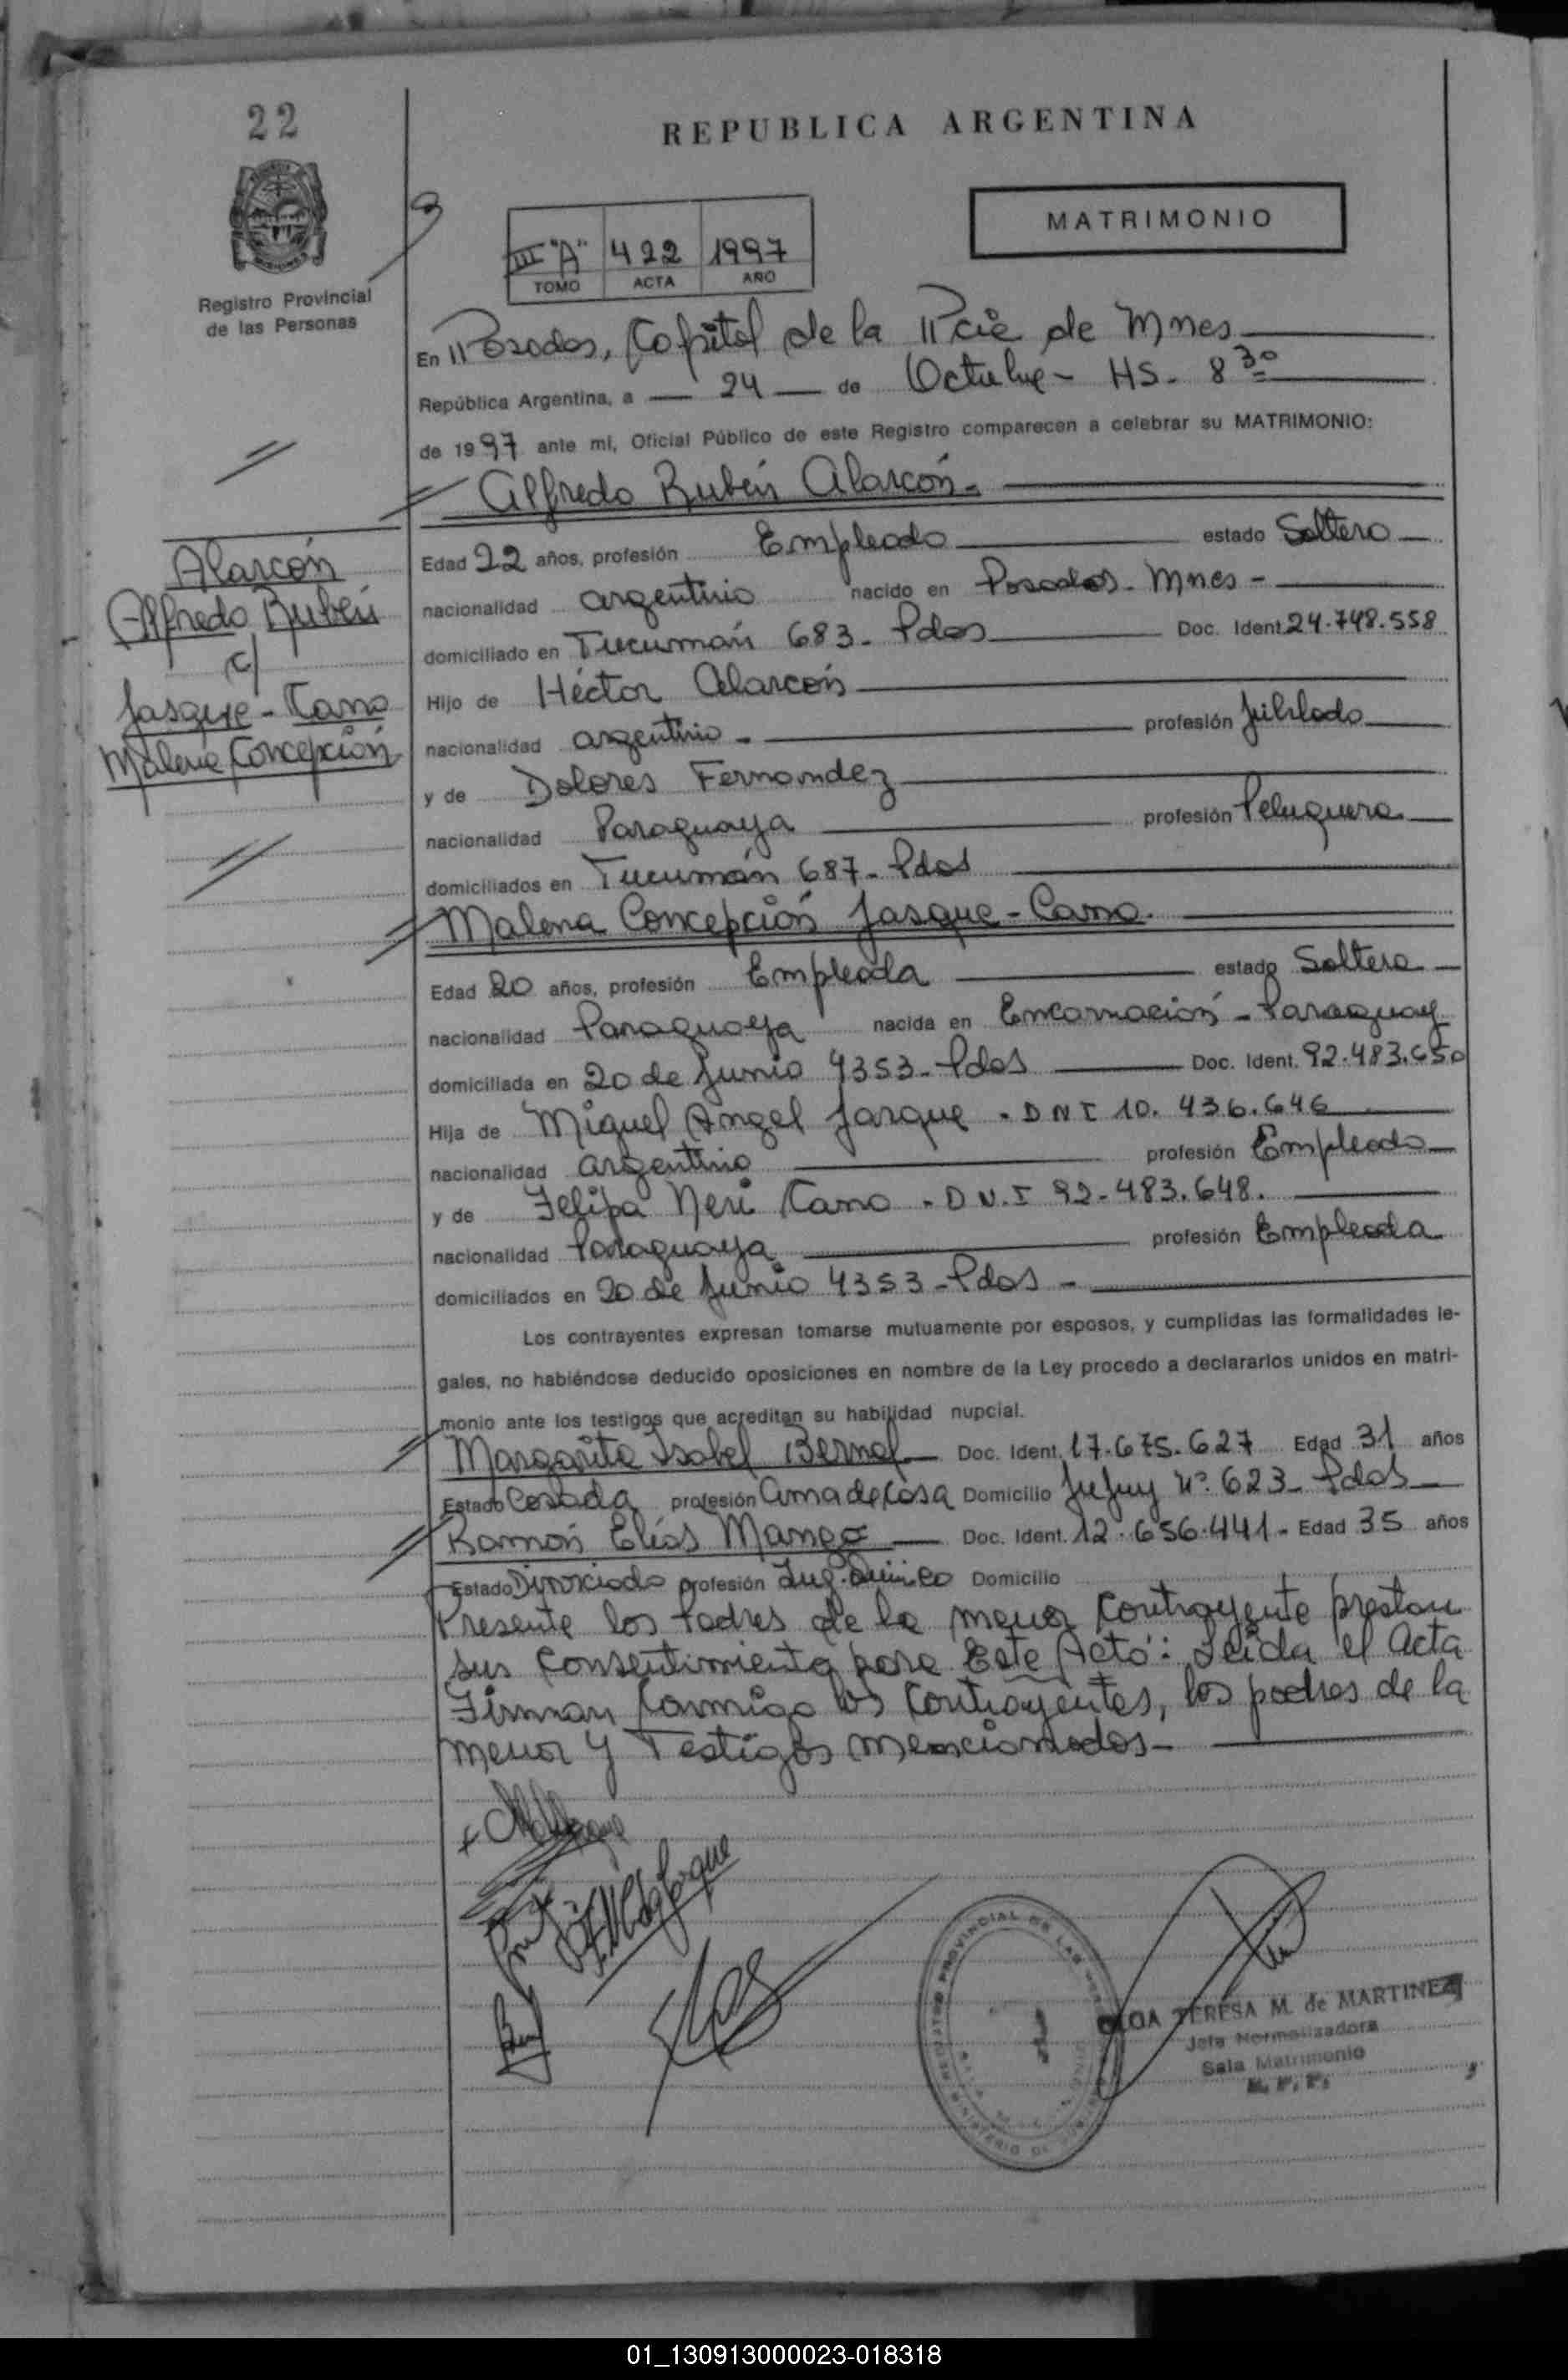 22
REPUBLICA ARGENTINA
Registro Provincial
de las Personas
III "A" 422 1997
TOMO ACTA AÑO
MATRIMONIO
En Posadas, Capital de la Pcie de Mnes
República Argentina, a 24 de Octubre - HS. 8 30
de 1997 ante mí, Oficial Público de este Registro comparecen a celebrar su MATRIMONIO:
Alfredo Rubén Alarcón.
Edad 22 años, profesión Empleado estado Soltero
nacionalidad argentino nacido en Posadas - Mnes -
domiciliado en Tucumán 683 - Pdas Doc. Ident. 24.748.558
Hijo de Héctor Alarcón
nacionalidad argentino - profesión Jubilado
y de Dolores Fernandez
nacionalidad Paraguaya profesión Peluquera
domiciliados en Tucumán 687 - Pdas
Malena Concepción Jasque - Cano.
Edad 20 años, profesión Empleada estado Soltera
nacionalidad Paraguaya nacida en Encarnación - Paraguay
domiciliada en 20 de Junio 4353 - Pdas Doc. Ident. 92.483.650
Hija de Miguel Angel Jarque - DNI 10.436.646
nacionalidad argentino profesión Empleado
y de Felipa Neri Cano - D.N.I 92-483.648.
nacionalidad Paraguaya profesión Empleada
domiciliados en 20 de Junio 4353 - Pdas -
Los contrayentes expresan tomarse mutuamente por esposos, y cumplidas las formalidades le-
gales, no habiéndose deducido oposiciones en nombre de la Ley procedo a declararlos unidos en matri-
monio ante los testigos que acreditan su habilidad nupcial.
Margarita Isabel Bernal Doc. Ident. 17.675.627 Edad 31 años
Estado Casada profesión ama de Casa Domicilio Jujuy Nº 623 - Pdas
Ramón Elías Doc. Ident. 12.656.441 - Edad 35 años
Estado Divorciado profesión Ing. Domicilio
Presente los Padres de la menor Contrayente prestan
sus Consentimiento para Este Acto: Leída el Acta
Firman Conmigo los Contrayentes, los padres de la
menor y Testigos mencionados -
Alarcón
Alfredo Rubén
c/
Jasque - Cano
Malena Concepción
OLGA TERESA M. de MARTINEZ
Jefa Normalizadora
Sala Matrimonio
01_130913000023-018318